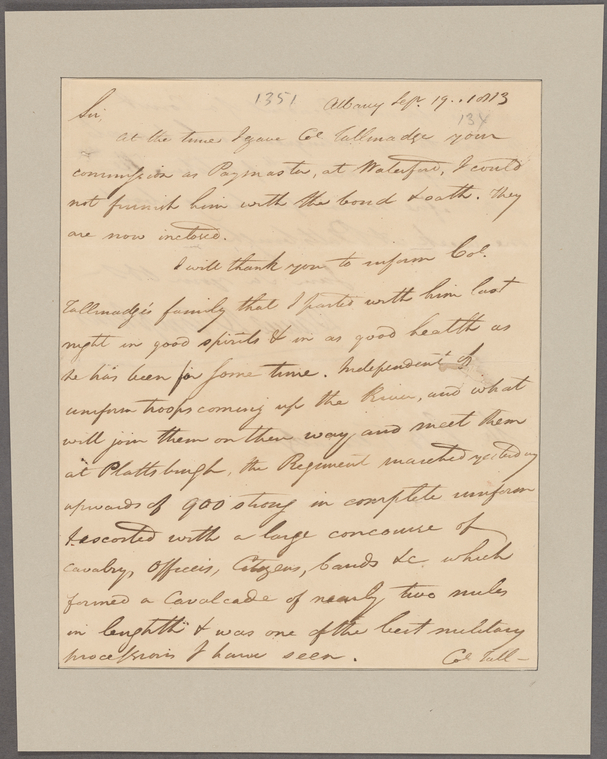 1351
Albany Sept. 19. 1813
134
Sir,
At the time I gave Col Tallmadge your
commission as Paymaster, at Waterford, I could
not furnish him with the bond & oath. They
are now inclosed.
I will thank you to inform Col.
Tallmadge's family that I parted with him last
night in good spirits & in as good health as
he has been for some time. Independent of
uniform troops coming up the River, and what
will join them on their way and meet them
at Plattsburgh, the Regiment marched yesterday
upwards of 900 strong in complete uniform
& escorted with a large concourse of
cavalry, officers, Citizens, bands &c. which
formed a Cavalcade of nearly two miles
in length & was one of the best military
processions I have seen.
Col Tall-